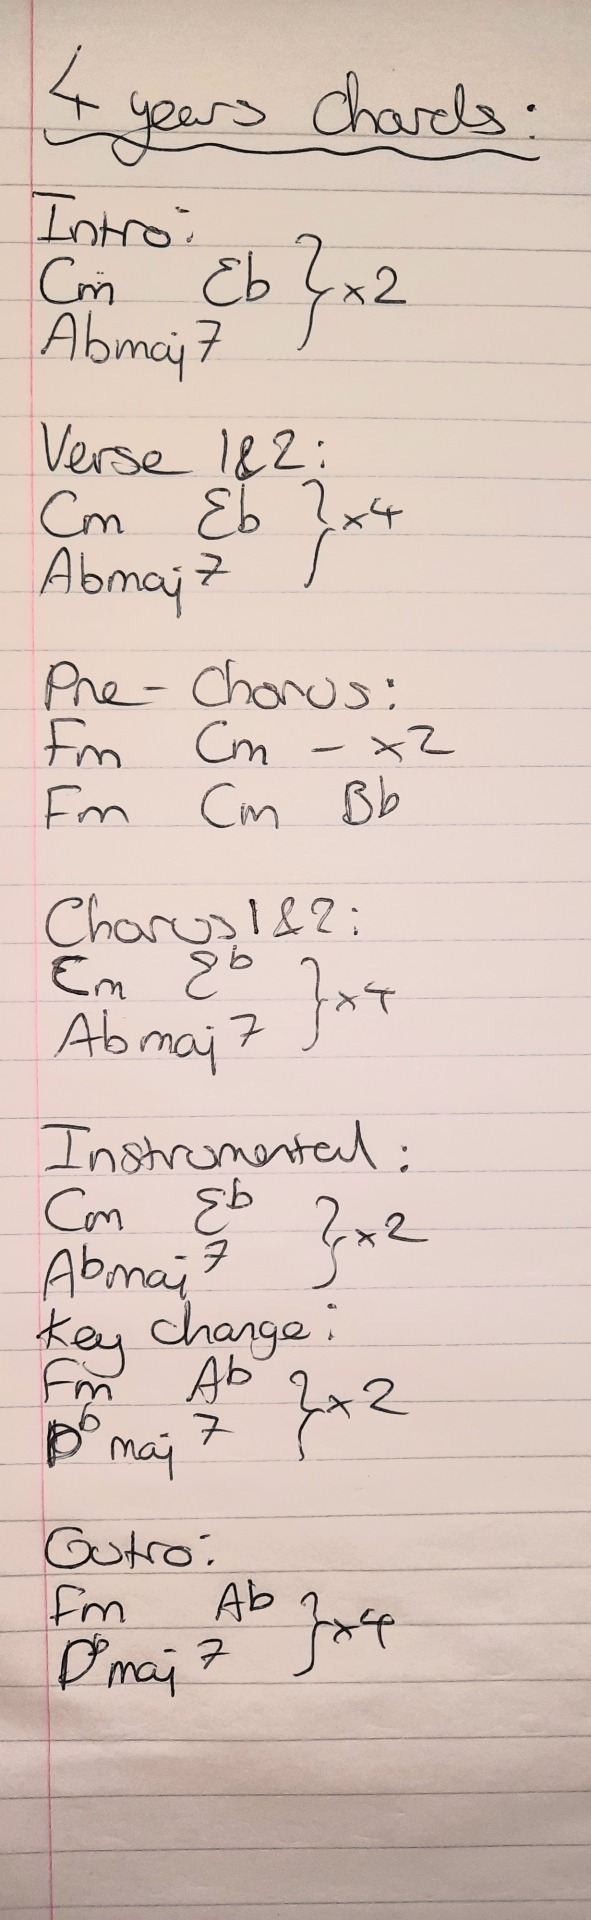 4 years chords:
Intro:
Cm Eb } x2
Abmaj7
Verse 1&2:
Cm Eb } x4
Abmaj7
Pre-Chorus:
Fm Cm - x2
Fm Cm Bb
Chorus 1&2:
Cm Eb } x4
Abmaj7
Instrumental:
Cm Eb } x2
Abmaj7
Key change:
Fm Ab } x2
Dbmaj7
Outro:
Fm Ab } x4
Dbmaj7